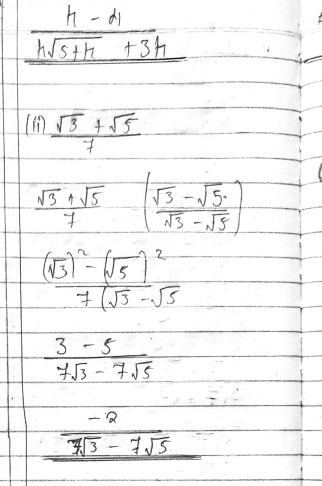 h - 4
h√5+h + 3h
(ii) √3 + √5
7
√3 + √5 (√3 - √5)
7 √3 - √5
(√3)² - (√5)²
7(√3 - √5
3 - 5
7√3 - 7√5
-2
7√3 - 7√5